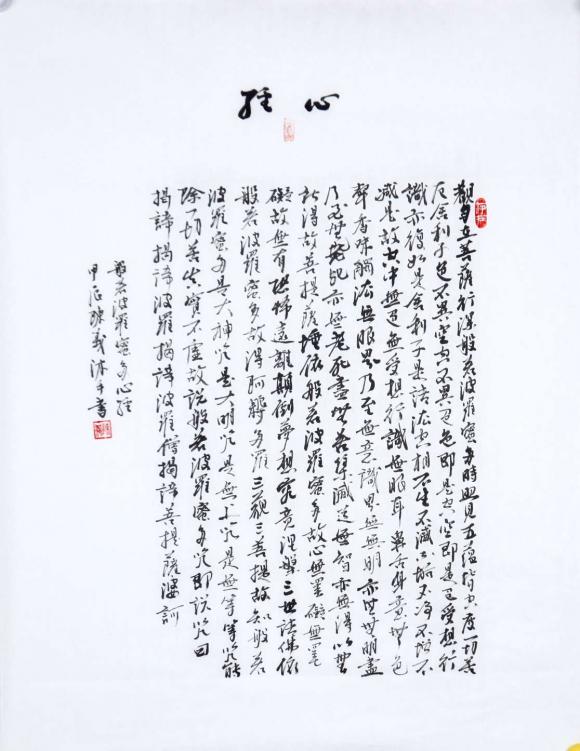 心經
觀自在菩薩行深般若波羅蜜多時照見五蘊皆空度一切苦
厄舍利子色不異空空不異色色即是空空即是色受想行
識亦復如是舍利子是諸法空相不生不滅不垢不淨不增不
減是故空中無色無受想行識無眼耳鼻舌身意無色
聲香味觸法無眼界乃至無意識界無無明亦無無明盡
乃至無老死亦無老死盡無苦集滅道無智亦無得以無
所得故菩提薩埵依般若波羅蜜多故心無罣礙無罣
礙故無有恐怖遠離顛倒夢想究竟涅槃三世諸佛依
般若波羅蜜多故得阿耨多羅三藐三菩提故知般若
波羅蜜多是大神咒是大明咒是無上咒是無等等咒能
除一切苦真實不虛故說般若波羅蜜多咒即說咒曰
揭諦揭諦波羅揭諦波羅僧揭諦菩提薩婆訶
般若波羅蜜多心經
甲辰陳沐手書